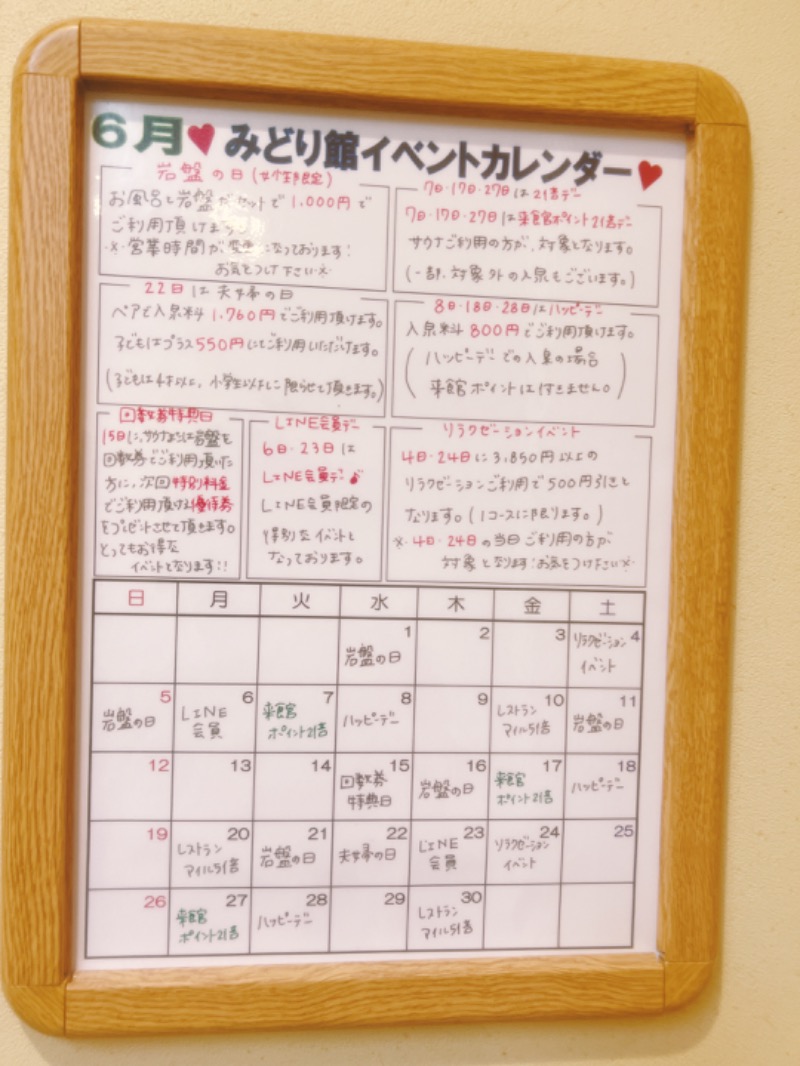 6月♥みどり館イベントカレンダー♥
岩盤の日(女性限定)
お風呂と岩盤がセットで1,000円で
ご利用頂けます!
※営業時間が変更になっております!
お気をつけ下さい※
7日・17日・27日は2倍デー
7日・17日・27日は来館ポイント2倍デー
サウナご利用の方が、対象となります。
(一部、対象外の入泉もございます。)
22日は夫婦の日
ペアで入泉料1,760円でご利用頂けます。
子どもはプラス550円にてご利用いただけます。
(子どもは4才以上、小学生以下に限らせて頂きます。)
8日・18日・28日はハッピーデー
入泉料800円でご利用頂けます。
(ハッピーデーでの入泉の場合
来館ポイントは付きません。)
回数券特典日
15日に、サウナまたは岩盤を
回数券でご利用頂いた
方に、次回特別料金
でご利用頂ける優待券
をプレゼントさせて頂きます。
とってもお得な
イベントとなります!!
LINE会員デー
6日・23日は
LINE会員デー♪
LINE会員限定の
特別なイベントと
なっております。
リラクゼーションイベント
4日・24日に3,850円以上の
リラクゼーションご利用で500円引きと
なります。(1コースに限ります。)
※4日・24日の当日ご利用の方が
対象となります!お気をつけ下さい※
日 月 火 水 木 金 土
1 2 3 4
岩盤の日 リラクゼーション イベント
5 6 7 8 9 10 11
岩盤の日 LINE会員 来館ポイント2倍 ハッピーデー レストランマイル5倍 岩盤の日
12 13 14 15 16 17 18
回数券特典日 岩盤の日 来館ポイント2倍 ハッピーデー
19 20 21 22 23 24 25
レストランマイル5倍 岩盤の日 夫婦の日 LINE会員 リラクゼーションイベント
26 27 28 29 30
来館ポイント2倍 ハッピーデー レストランマイル5倍